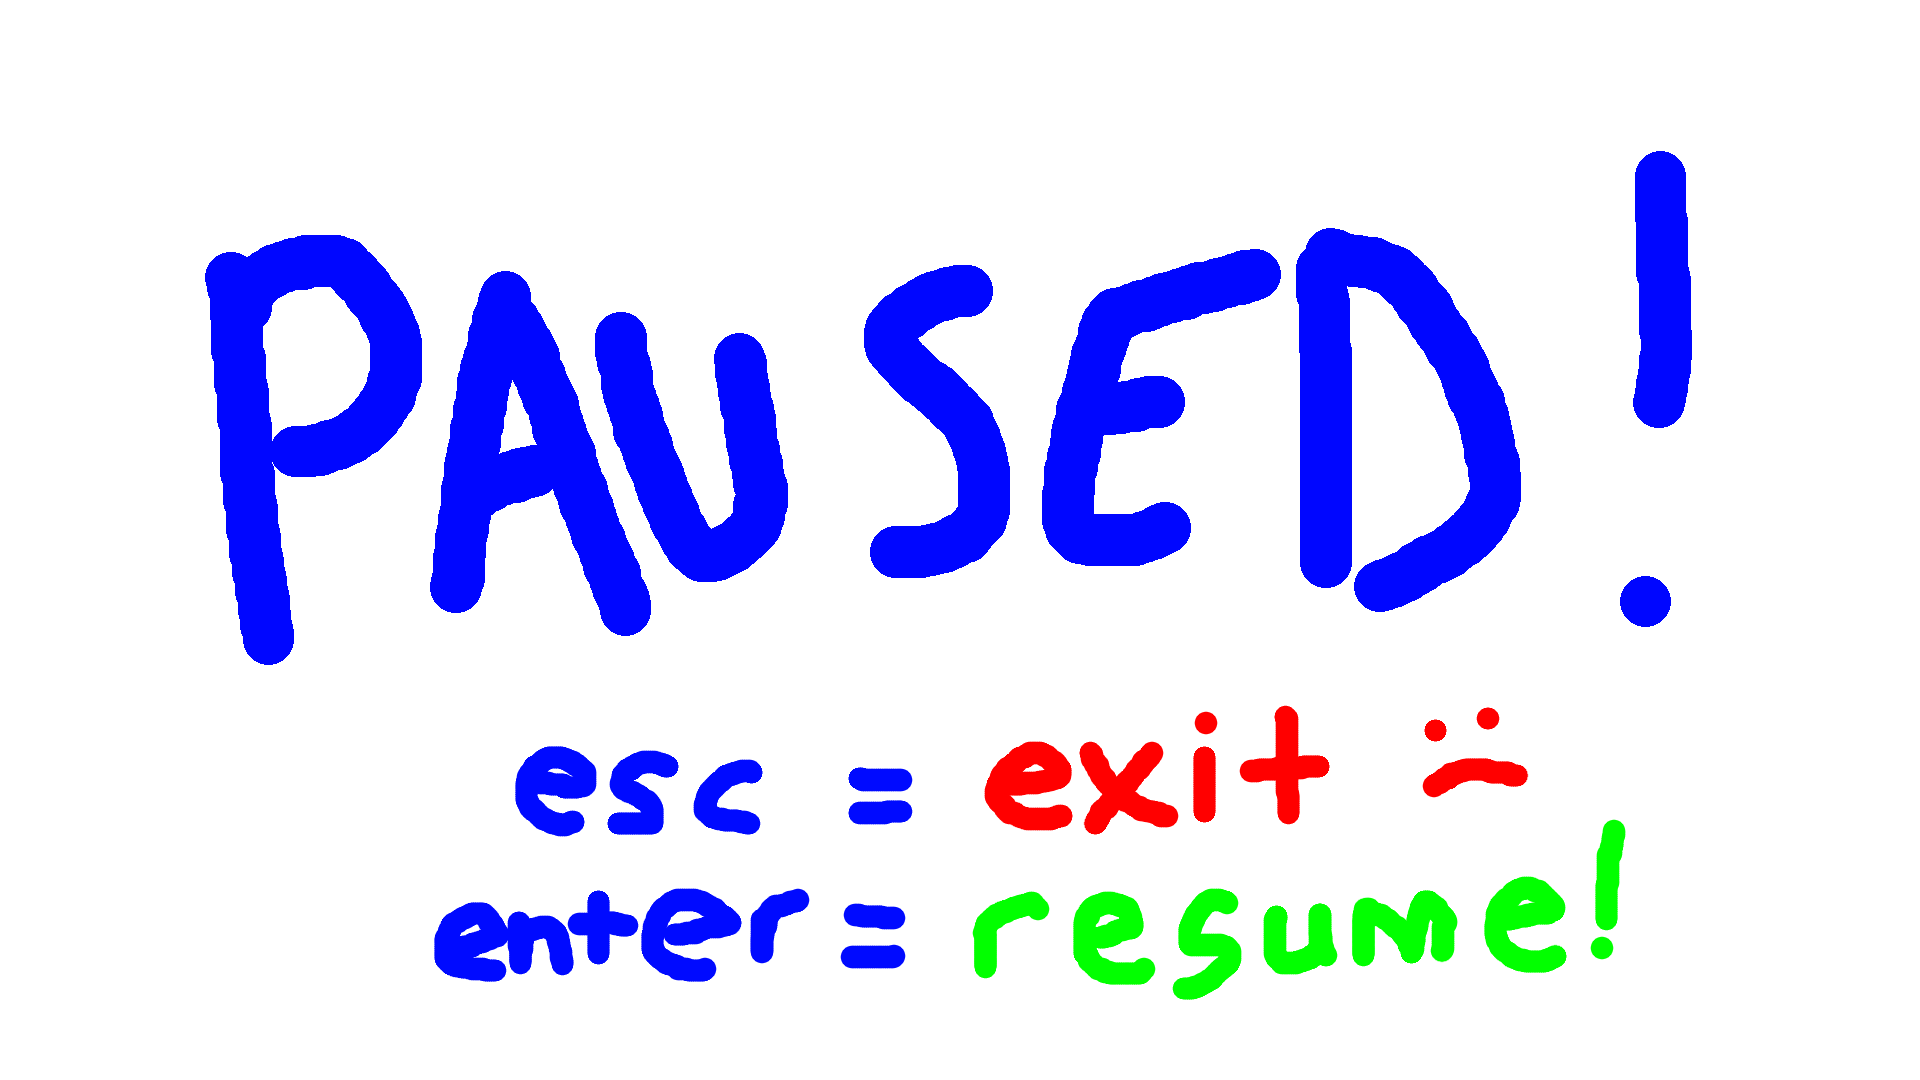 PAUSED!
esc = exit :(
enter = resume!